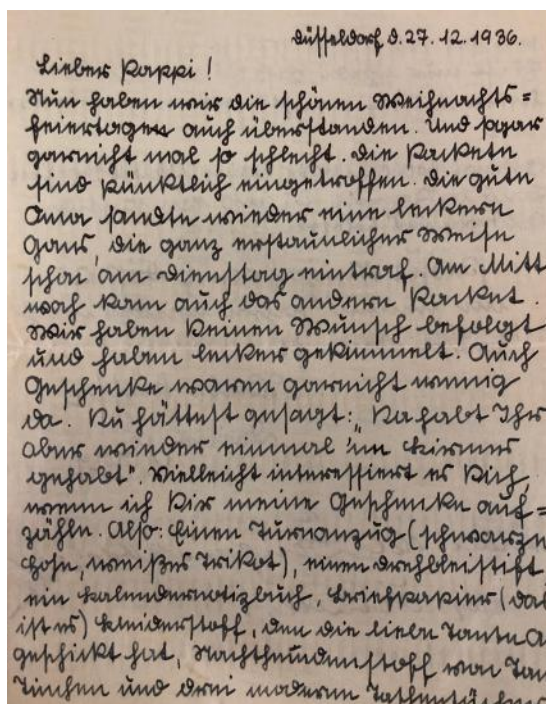 Düsseldorf d. 27. 12. 1936.
Lieber Pappi!
Nun haben wir die schönen Weihnachts=
feiertagen auch überstanden. Und sogar
garnicht mal so schlecht. Die Packete
sind pünktlich eingetroffen. Die gute
Oma sandte wieder eine leckere
Gans, die ganz erstaunlicher Weise
schon am Dienstag eintraf. Am Mitt
woch kam auch das andere Packet.
Wir haben Deinen Wunsch befolgt
und haben lecker gekimmelt. Auch
Geschenke waren garnicht wenig
da. Du hättest gesagt: „Da habt Ihr
aber wieder einmal 'ne Kirmes
gehabt". Vielleicht interessiert es Dich,
wenn ich Dir meine Geschenke auf=
zähle. Also: Einen Turnanzug (schwarze
Hose, weißes Trikot), einen Drehbleistift
ein Kalendernotizbuch, Briefpapier (das
ist es) Kleiderstoff, den die liebe Tante A
geschickt hat, Nachthemdenstoff von Tan
Tinchen und drei moderne